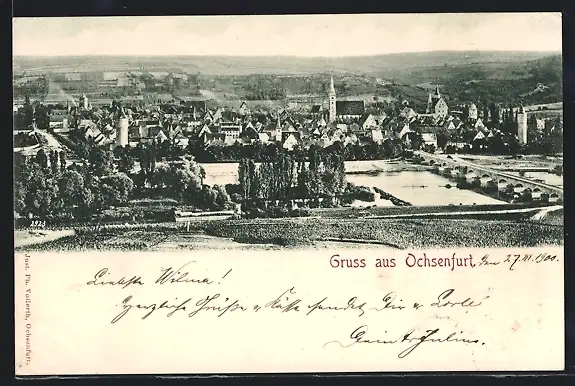 2928
Gruss aus Ochsenfurt, den 27.VI.1900.
Liebste Wilma!
Herzliche Grüße u Küsse sendet Dir u
Dein tr. Julius.
Jos. Ph. Volferth, Ochsenfurt.